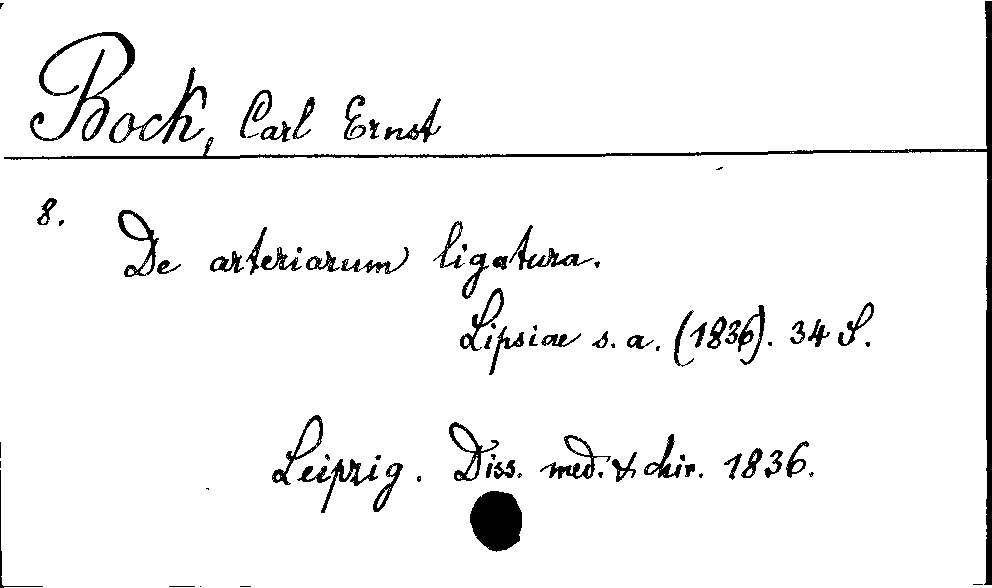 Bock, Carl Ernst
8.
De arteriarum ligatura.
Lipsiae s. a. (1836). 34 S.
Leipzig. Diss. med. & chir. 1836.